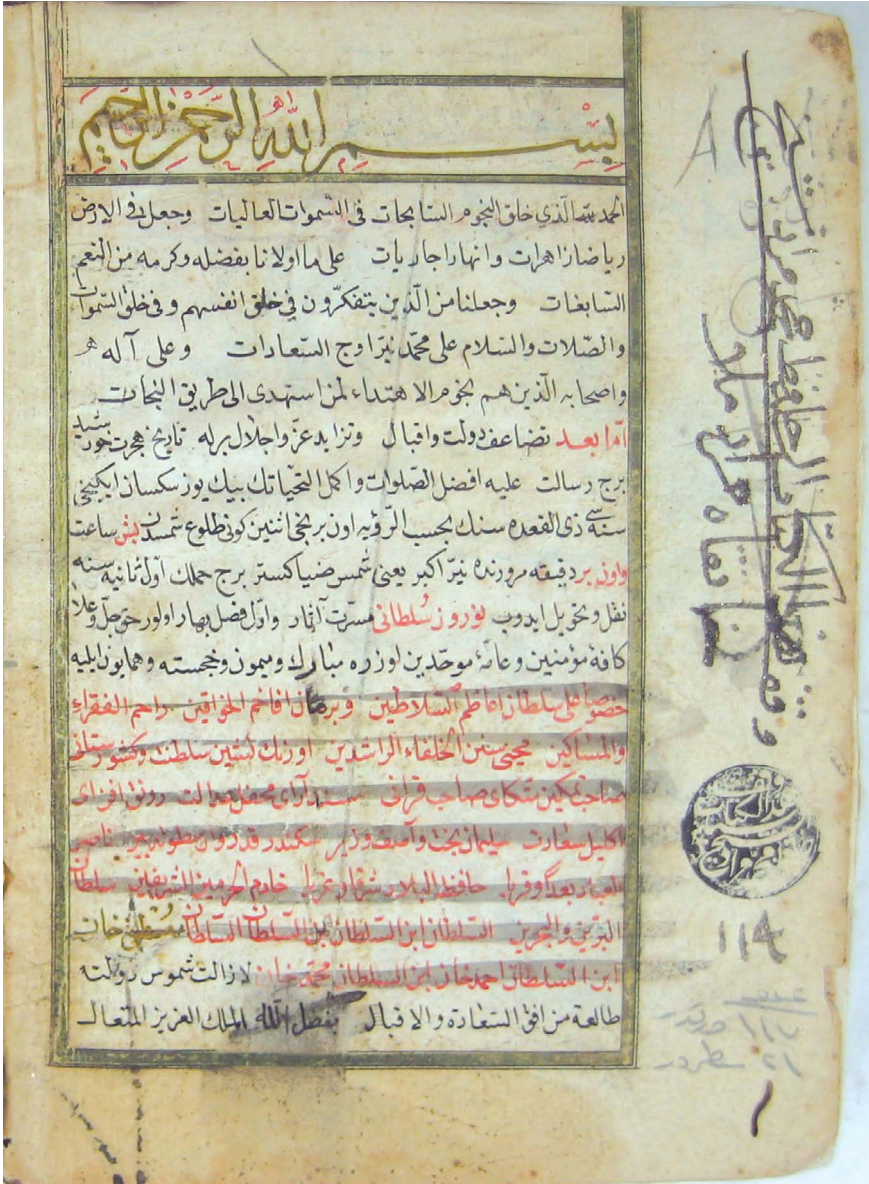 بسم الله الرحمن الرحيم
الحمد لله الذي خلق النجوم السابحات فى السموات العاليات وجعل فى الارض
رياضا زاهرات وانهارا جاريات على ما اولانا بفضله وكرمه من النعم
السابغات وجعلنا من الذين يتفكرون في خلق انفسهم وفى خلق السموات
والصلات والسلام على محمد نير اوج السعادات وعلى آله
واصحابه الذين هم نجوم الاهتداء لمن استهدى الى طريق النجات
اما بعد تضاعف دولت واقبال وتزايد عز واجلال برله تاريخ هجرت خورشيد
برج رسالت عليه افضل الصلوات واكمل التحياتك بيك يوز سكسان ايكنجى
سنه سى ذى القعده سنك بحسب الرؤيه اون برنجى اثنين كونى طلوع شمسدن بش ساعت
واون بر دقيقه مرورنده نير اكبر يعنى شمس ضيا كستر برج حملك اول ثانيه سنه
نقل وتحويل ايدوب نوروز سلطانى مسرت آثار واول فصل بهار اولور حق جل وعلا
كافة مؤمنين وعامة موحدين اوزره مبارك وميمون وخجسته وهمايون ايليه
خصوصا على سلطان اعاظم السلاطين وبرهان افاخم الخواقين راحم الفقراء
والمساكين محيى سنن الخلفاء الراشدين اورنك نشين سلطنت وكشورستانى
صاحب تمكين متكاى صاحب قرانى مسند آراى محفل عدالت رونق افزاى
اكليل سعادت سليمان بخت وآصف وزير سكندر قدر
العباد بعدا وقربا حافظ البلاد شرقا وغربا خادم الحرمين الشريفين سلطان
البرين والبحرين السلطان ابن السلطان ابن السلطان السلطان مصطفى خان
ابن السلطان احمد خان ابن السلطان محمد خان لا زالت شموس دولته
طالعة من افق السعادة والاقبال بفضل الله الملك العزيز المتعال
وقف هذا الكتاب الحافظ محمد مراد
خانقاه مراد ملا